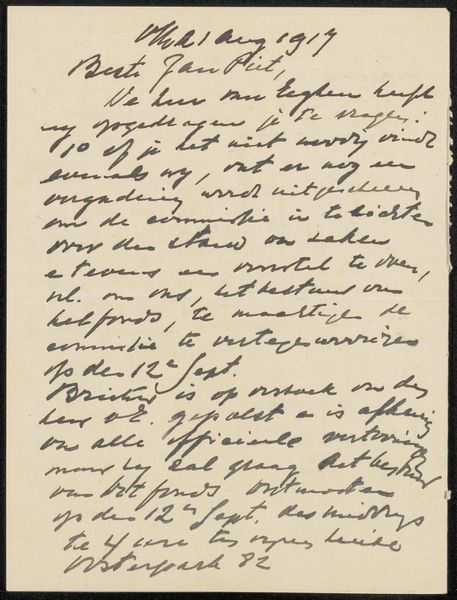 21 Aug 1917
Beste Jan Piet,
De heer van Eeghen heeft
my opgedragen je te vragen:
1o of je het niet noodig vindt
evenals wy, dat er nog een
vergadering wordt uitgeschreven
om de commissie in te lichten
over den stand van zaken
tevens een voorstel te doen,
nl. om ons, het bestuur van
het fonds, te machtigen de
commissie te vertegenwoordigen
op den 12e Sept.
is op verzoek van den
heer v. E. gepolst en is afkeerig
van alle officieele vertooning
maar hy zal graag het bestuur
van het fonds ontmoeten
op den 12en Sept. des middags
te 4 uur ten mynen huize
Oosterpark 82